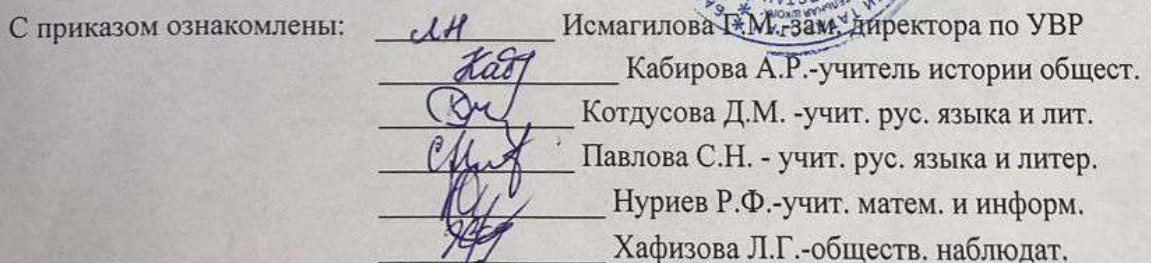 С приказом ознакомлены: Исмагилова Г.М.-зам. директора по УВР
Кабирова А.Р.-учитель истории общест.
Котдусова Д.М. -учит. рус. языка и лит.
Павлова С.Н. - учит. рус. языка и литер.
Нуриев Р.Ф.-учит. матем. и информ.
Хафизова Л.Г.-обществ. наблюдат.